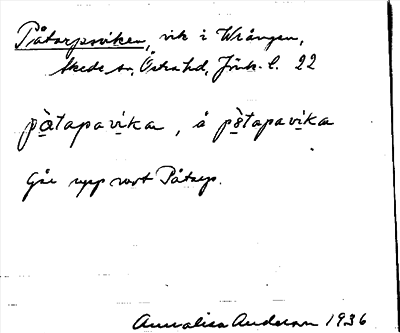 Påtorpsviken, vik i Wrången,
Skede sn, Östra hd, Jönk. l. 22
pòtapavika, å pòtapavika
Går upp mot Påtorp.
Annalisa Anderson 1936